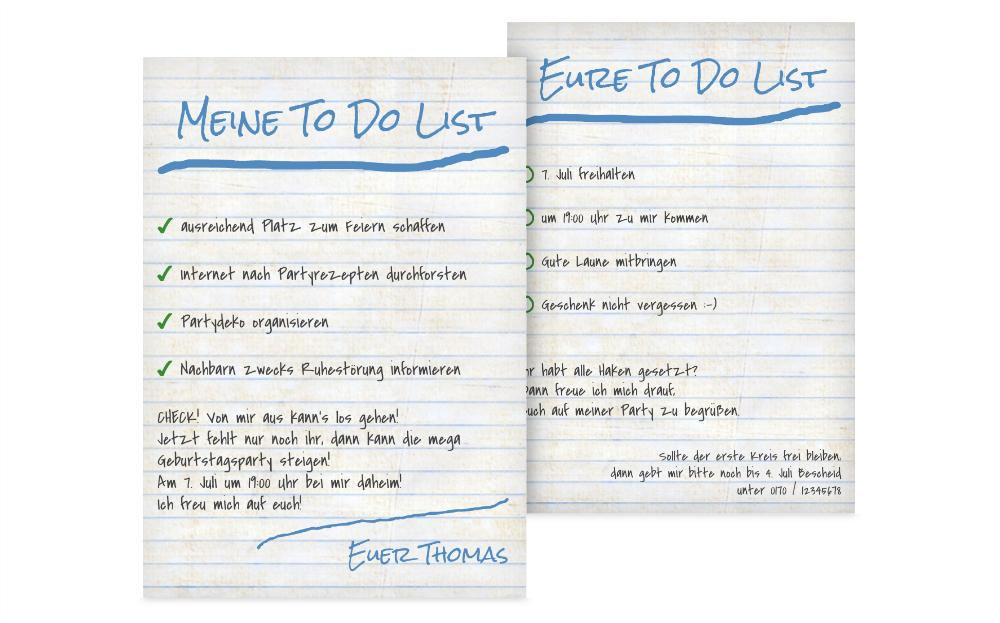 MEINE TO DO LIST
ausreichend Platz zum Feiern schaffen
Internet nach Partyrezepten durchforsten
Partydeko organisieren
Nachbarn zwecks Ruhestörung informieren
CHECK! Von mir aus kann's los gehen!
Jetzt fehlt nur noch ihr, dann kann die mega
Geburtstagsparty steigen!
Am 7. Juli um 19:00 uhr bei mir daheim!
Ich freu mich auf euch!
EUER THOMAS
EURE TO DO LIST
7. Juli freihalten
um 19:00 uhr zu mir kommen
Gute Laune mitbringen
Geschenk nicht vergessen :-)
habt alle Haken gesetzt?
freue ich mich drauf,
auf meiner Party zu begrüßen.
Sollte der erste Kreis frei bleiben,
dann gebt mir bitte noch bis 4. Juli Bescheid
unter 0170 / 12345678